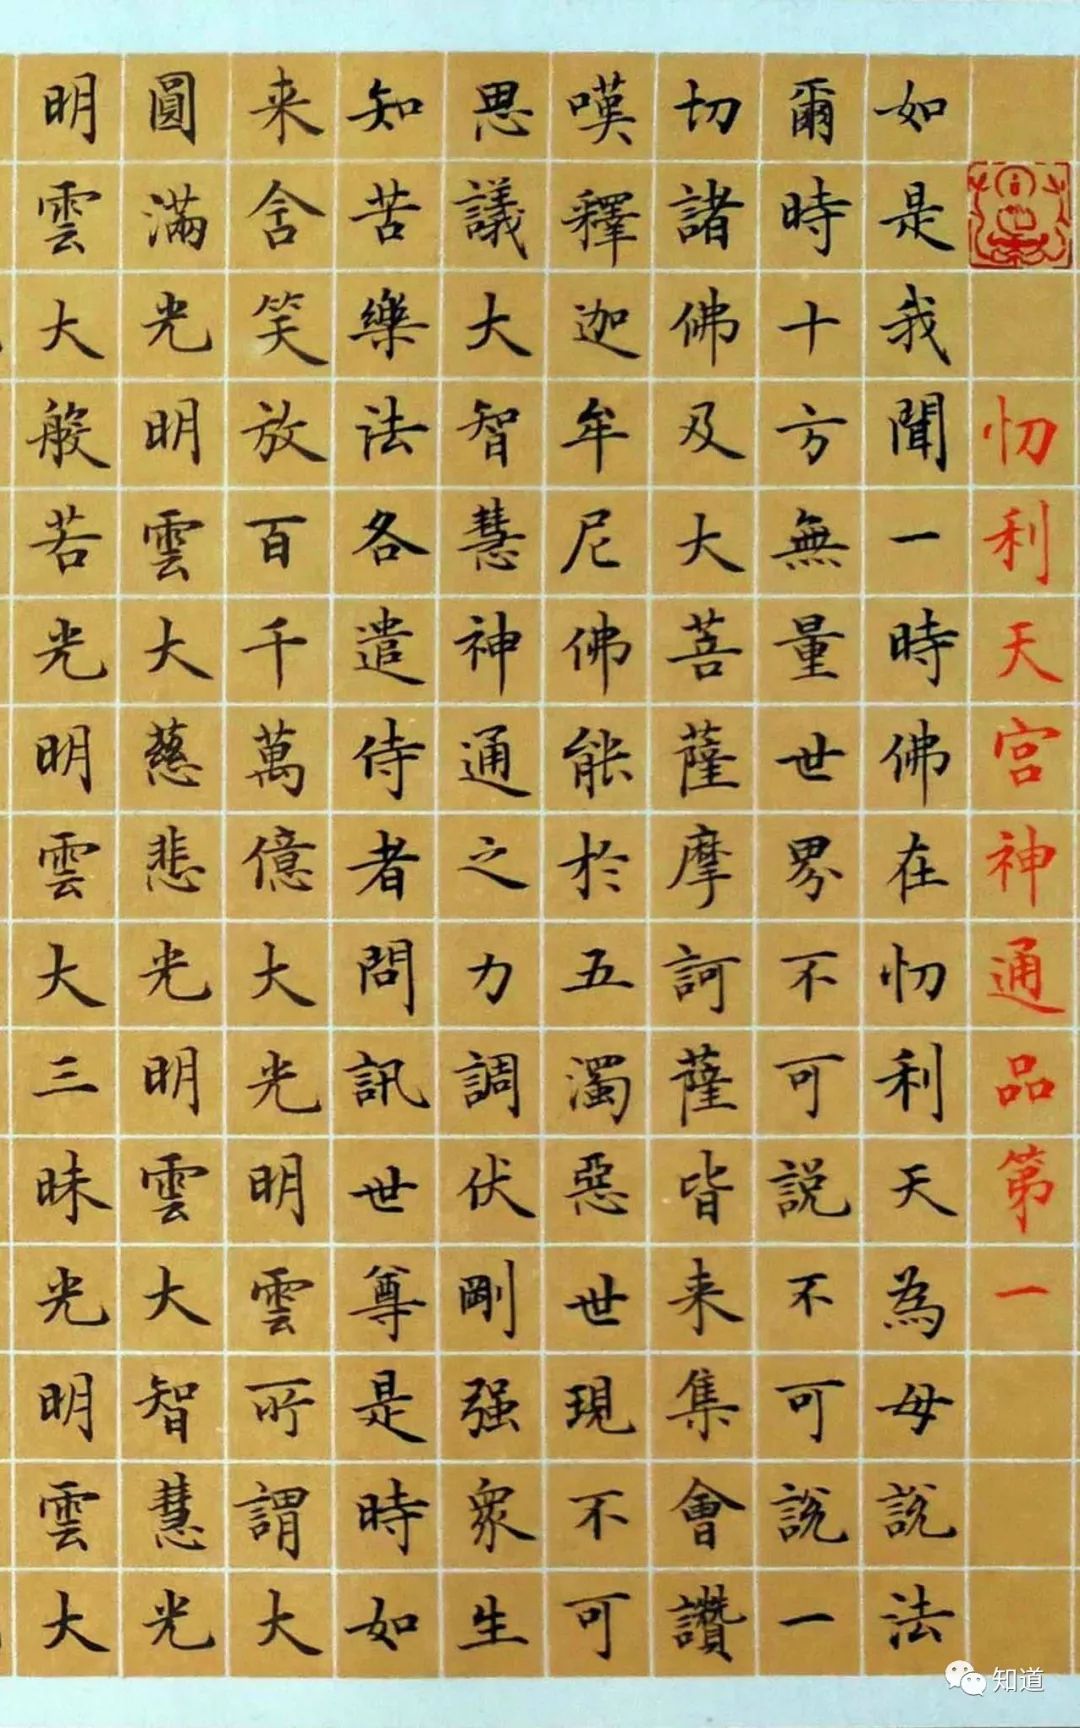 忉利天宫神通品第一
如是我聞一時佛在忉利天為母說法
爾時十方無量世界不可説不可說一
切諸佛及大菩薩摩訶薩皆来集會讚
嘆釋迦牟尼佛能於五濁惡世現不可
思議大智慧神通之力調伏剛强眾生
知苦樂法各遣侍者問訊世尊是時如
来含笑放百千萬億大光明雲所謂大
圓滿光明雲大慈悲光明雲大智慧光
明雲大般若光明雲大三昧光明雲大
知道